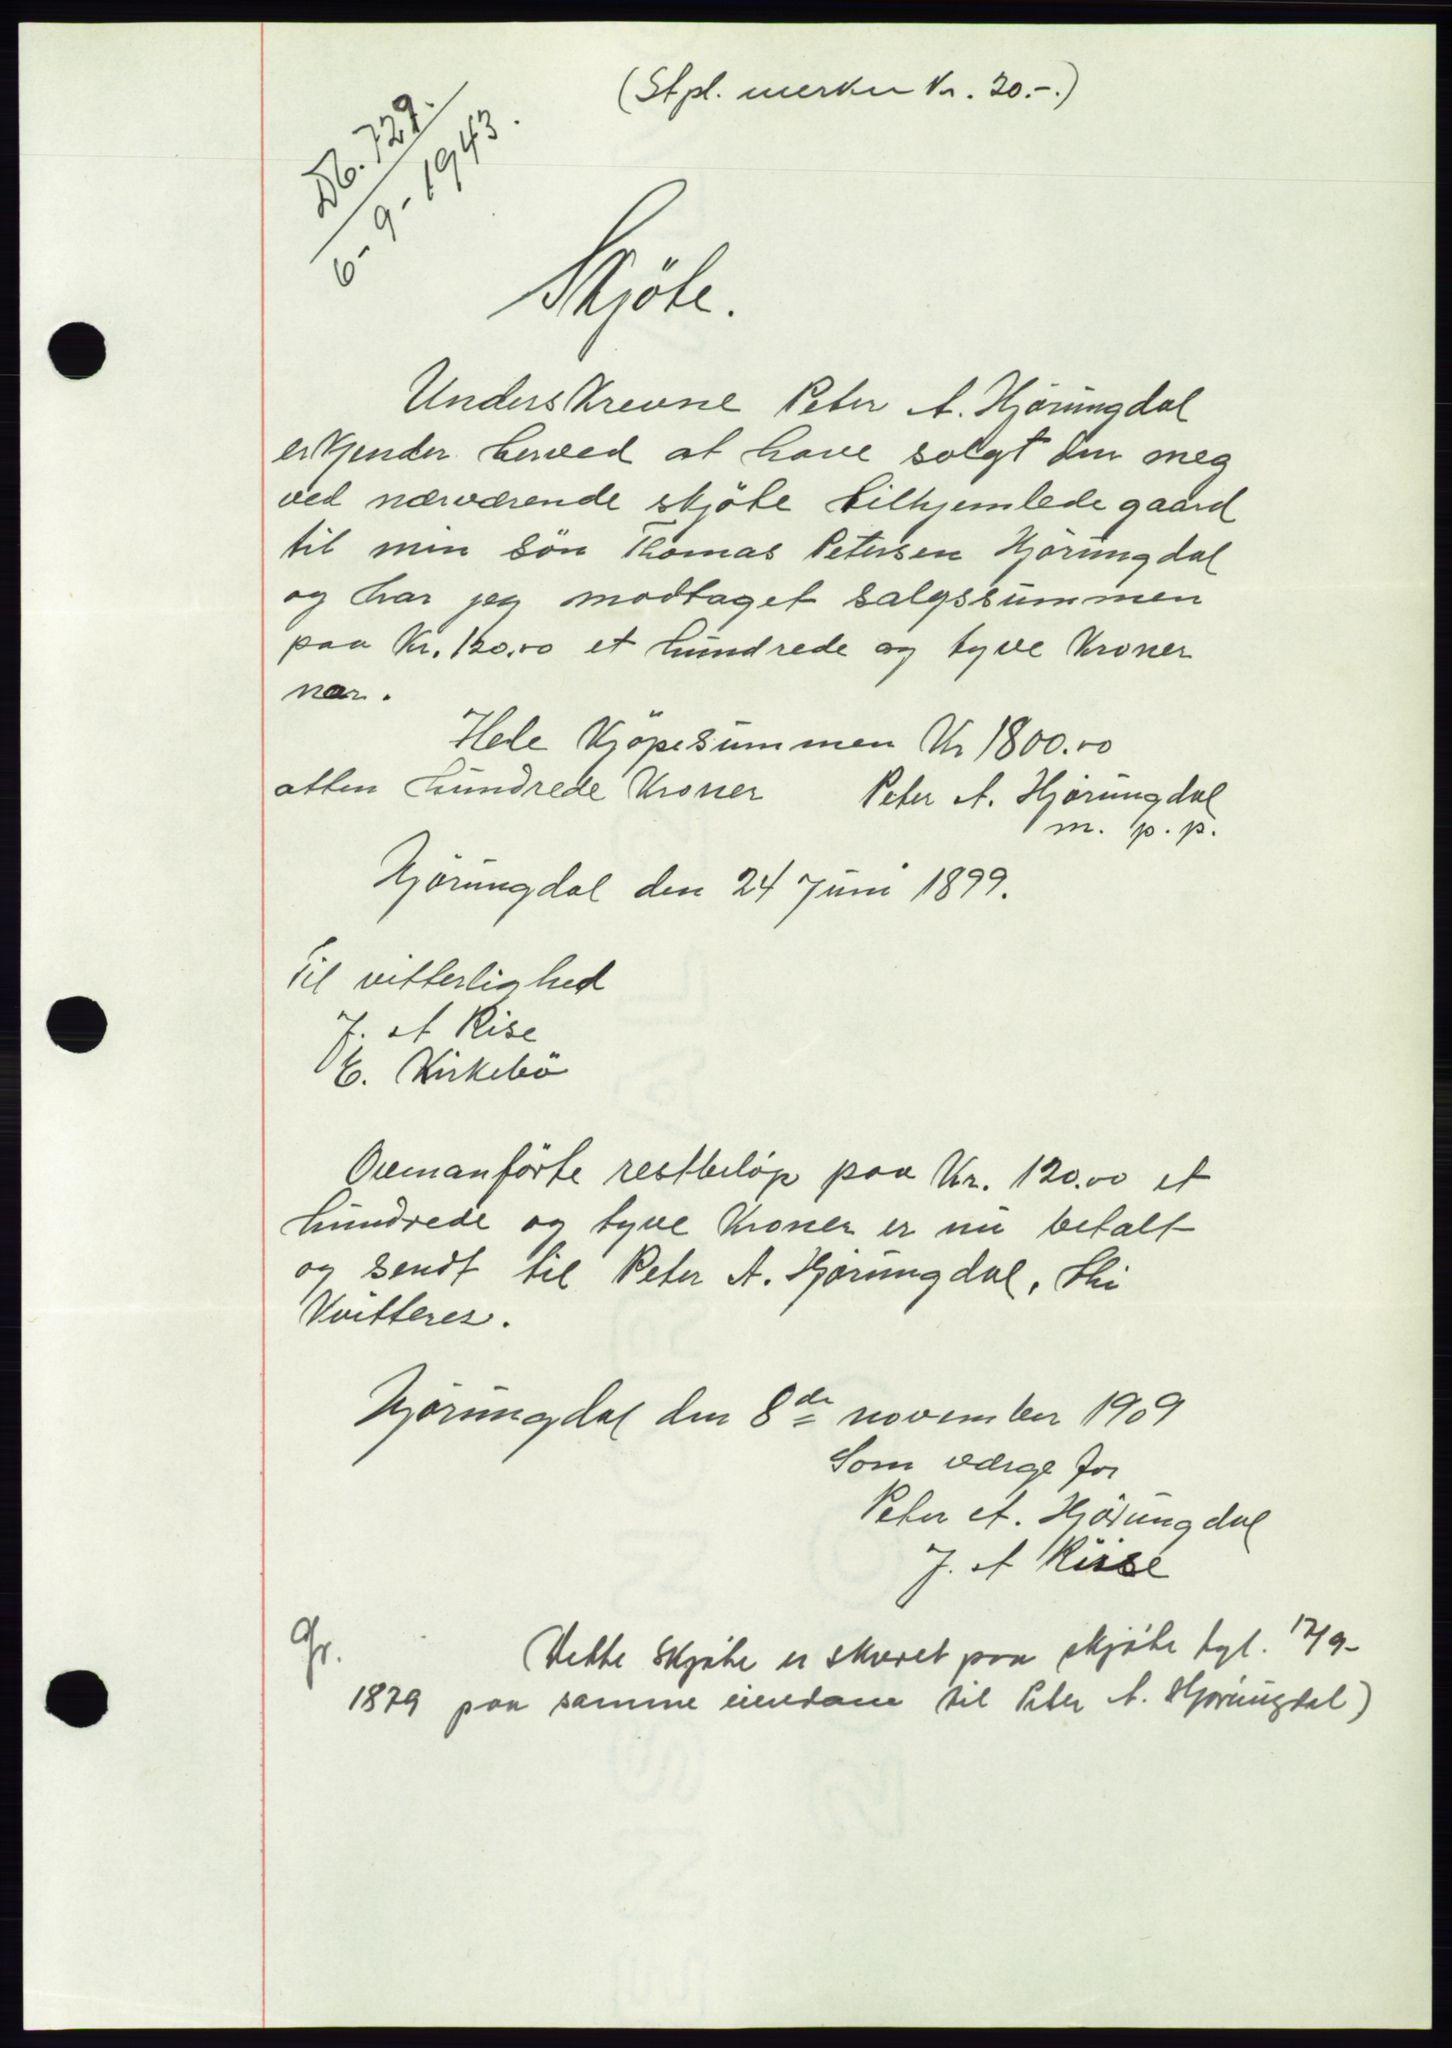 (Stpl. merker Kr. 20.-.)
Db. 729.
6-9-1943.
Skjöte.
Underskrevne Peter A. Hjörungdal
erkjender herved at have solgt den meg
ved nærværende skjöte tilhjemlede gaard
til min sön Thomas Petersen Hjörungdal
og har jeg modtaget salgssummen
paa Kr. 120.00 et hundrede og tyve Kroner
nær.
Hele Kjöpesummen Kr 1800.00
atten hundrede Kroner Peter A. Hjörungdal
m. p. p.
Hjörungdal den 24 Juni 1899.
Til vitterlighed
J. A Rise
E. Kirkebö
Ovenanförte restbelöp paa Kr. 120.00 et
hundrede og tyve Kroner er nu betalt
og sendt til Peter A. Hjörungdal, Thi
Kvitteres.
Hjörungdal den 8de november 1909
Som værge for
Peter A. Hjörungdal
J. A Riise
Gr.
(Dette skjöte er skrevet paa skjöte tgl. 17/9-
1879 paa samme eiendom til Peter A. Hjörungdal)